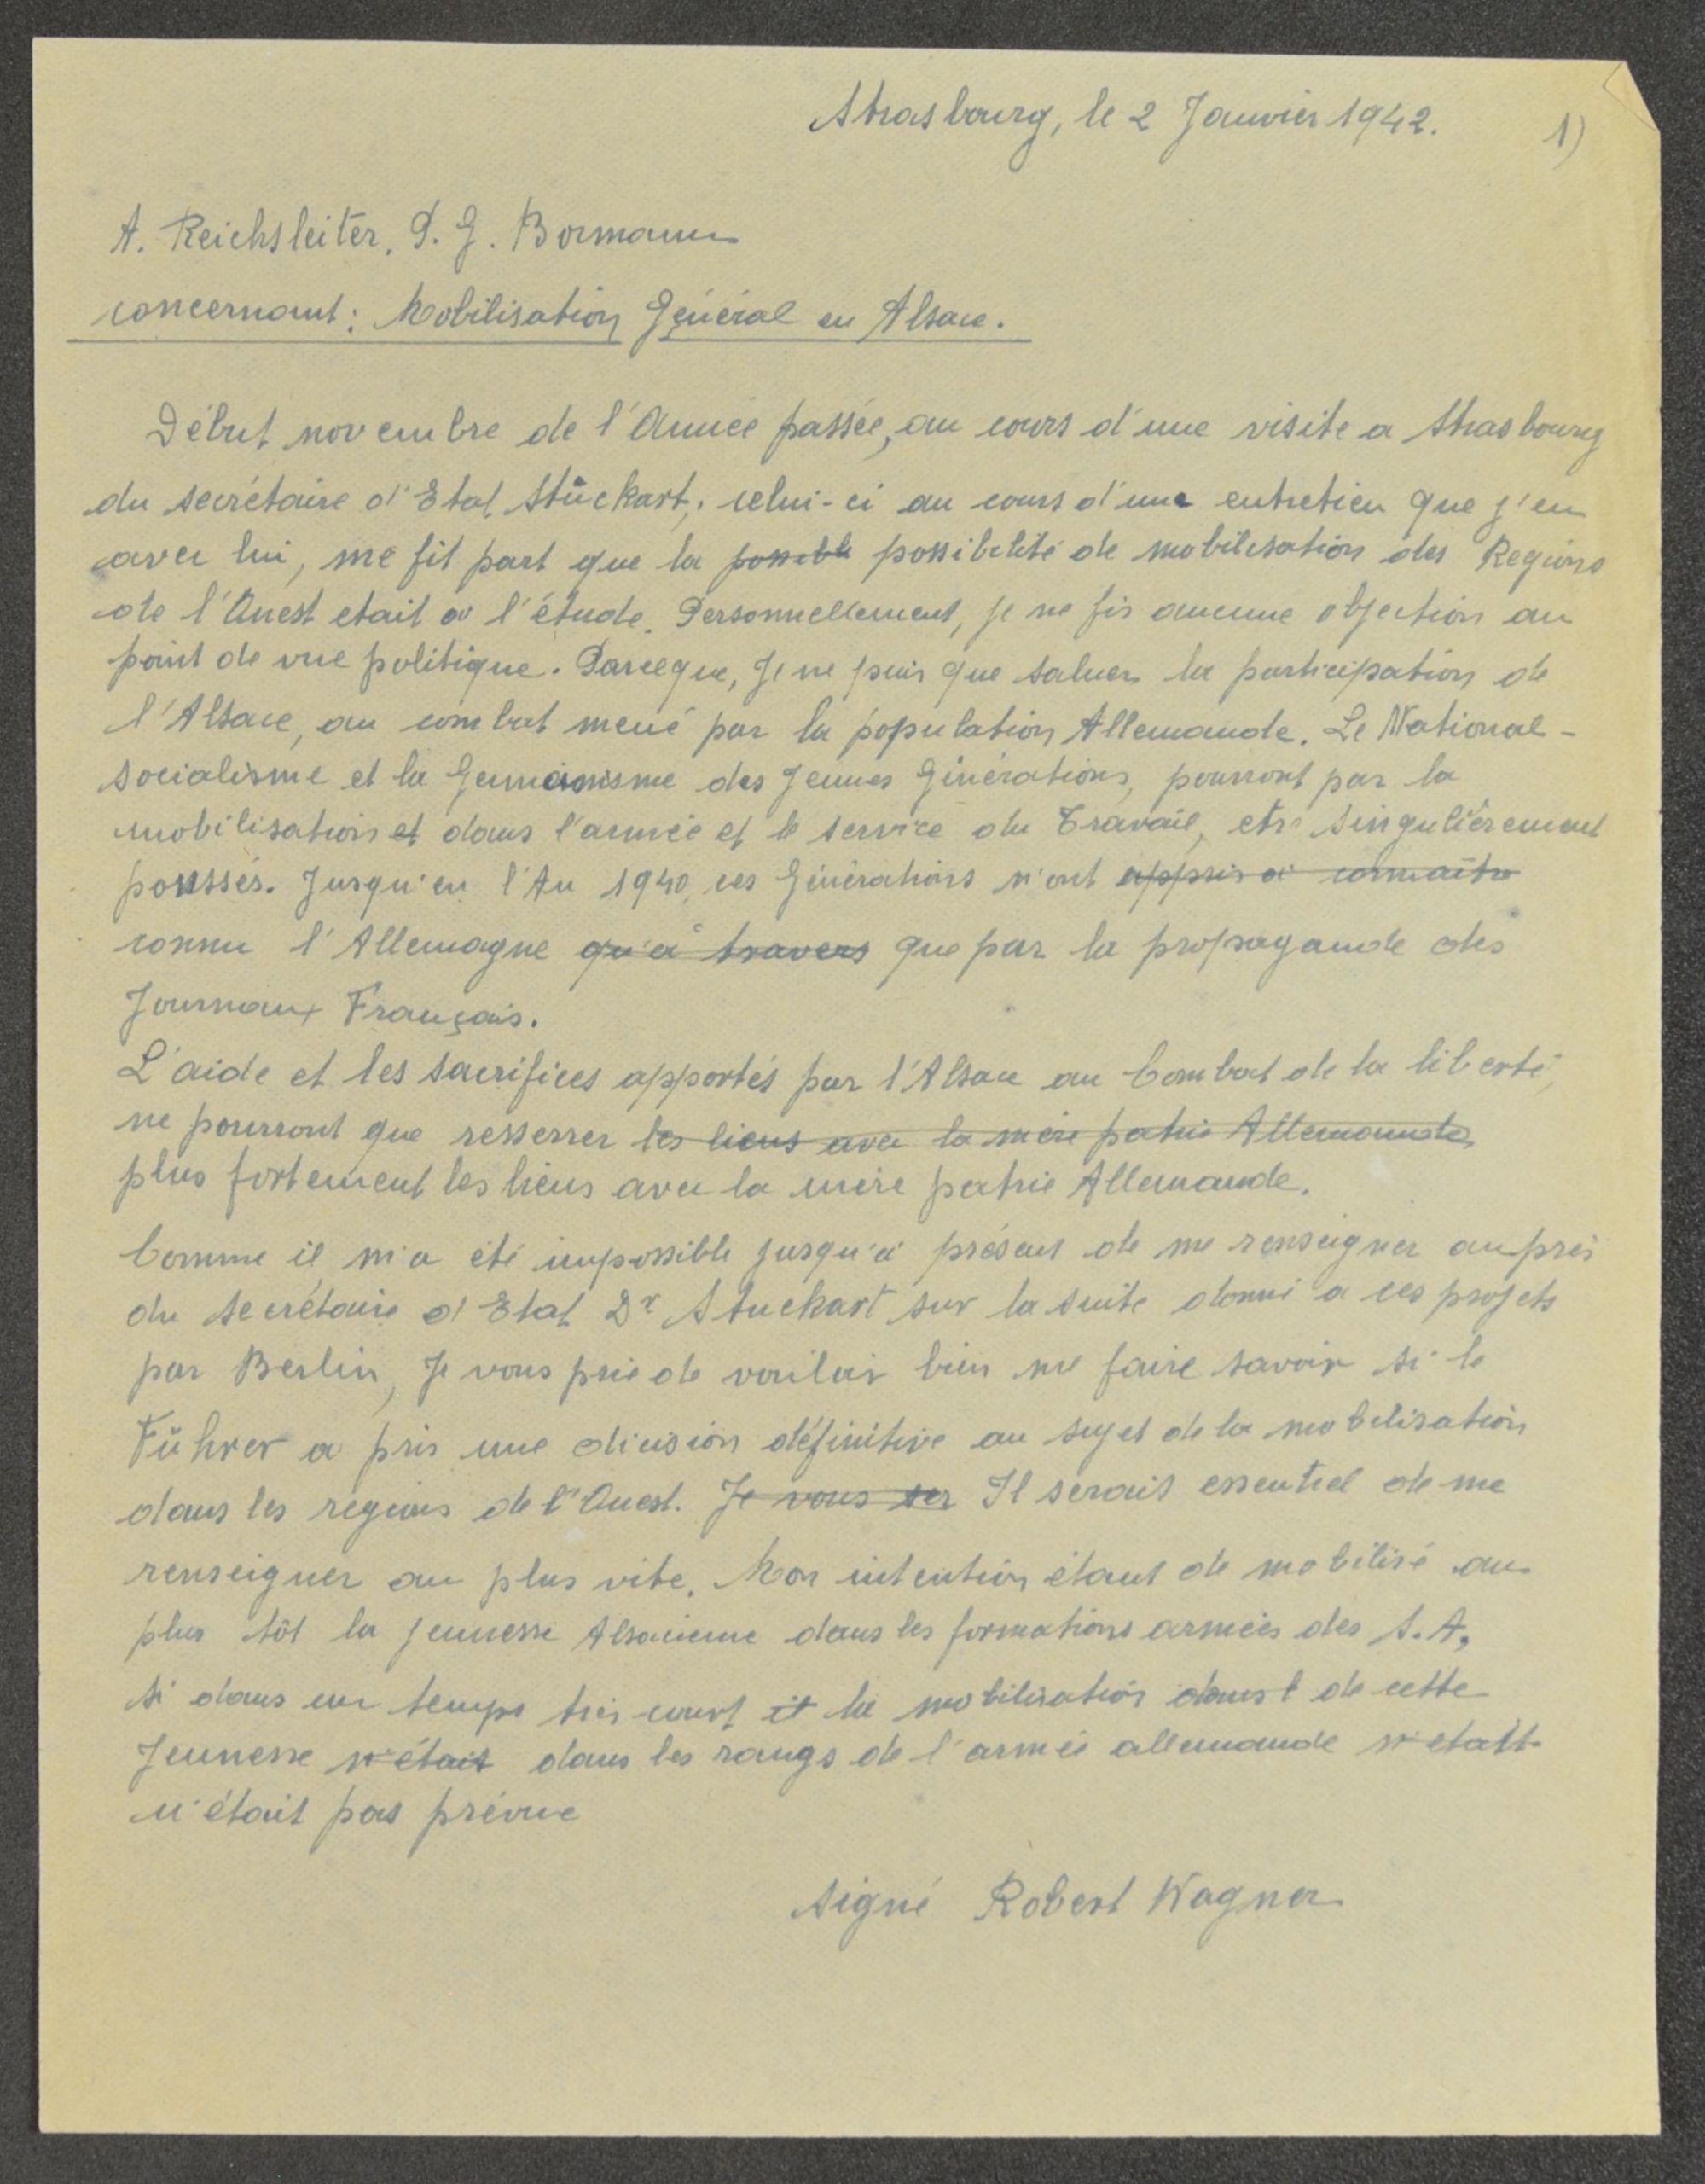 Strasbourg, le 2 Janvier 1942.
1)
A. Reichsleiter, P. G. Bormann
concernant: Mobilisation Général en Alsace.
Début novembre de l'Année passée, au cours d'une visite a Strasbourg
du secrétaire d'Etat Stückart, celui-ci au cours d'une entretien que j'eu
avec lui, me fit part que la possible possibilité de mobilisation des Regions
de l'Ouest etait a l'étude. Personnellement, je ne fis aucune objection au
point de vue politique. Parceque, Je ne puis que saluer la participation de
l'Alsace, au combat mené par la population Allemande. Le National-
socialisme et la Germanisme des Jeunes Générations, pourront par la
mobilisation et dans l'armée et le service du Travail, etre singulièrement
poussés. Jusqu'en l'An 1940, ces Générations n'ont appris a connaître
connu l'Allemagne qu'à travers que par la propagande des
Journaux Français.
L'aide et les sacrifices apportés par l'Alsace au Combat de la liberté,
ne pourront que resserrer les liens avec la mère patrie Allemande
plus fortement les liens avec la mère patrie Allemande.
Comme il m'a été impossible jusqu'à présent de me renseigner auprès
du secrétaire d'Etat Dr Stuckart sur la suite donné a ces projets
par Berlin, Je vous prie de vouloir bien me faire savoir si le
Führer a pris une décision définitive au sujet de la mobilisation
dans les régions de l'Ouest. Je vous ser Il serait essentiel de me
renseigner au plus vite. Mon intention étant de mobilisé au
plus tôt la jeunesse Alsacienne dans les formations armées des S.A,
si dans un temps très court it la mobilisation dans l de cette
Jeunesse n'était dans les rangs de l'armée allemande n'etait
n'était pas prévue
signé Robert Wagner